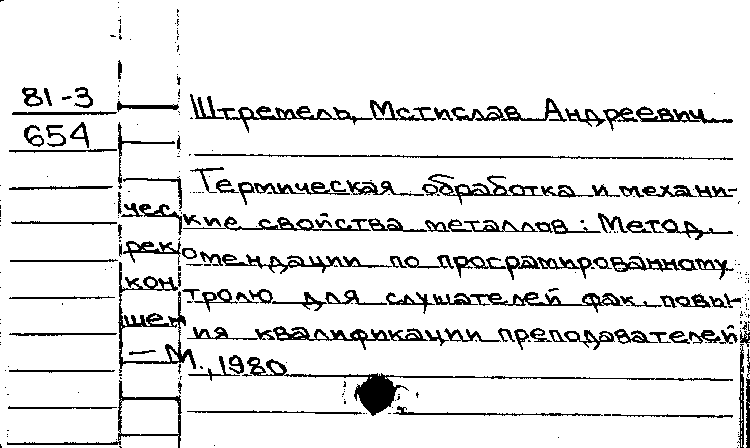 81-3
Штремель, Мстислав Андреевич
654
Термическая обработка и механи-
ческие свойства металлов: Метод.
рекомендации по програмированному
контролю для слушателей фак. повы-
шения квалификации преподавателей
— М., 1980